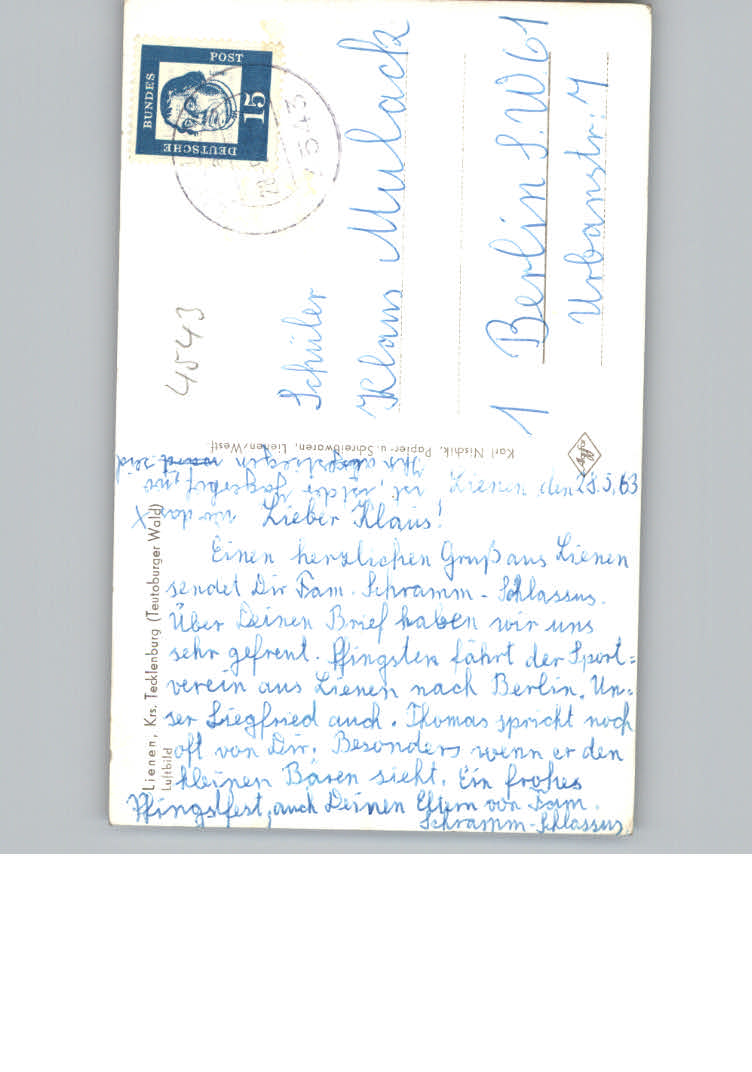 DEUTSCHE
BUNDES
POST
15
4543
4543
Schüler
Klaus Mulack
1 Berlin S.W 61
Urbanstr. 7
Karl Nischik, Papier- u. Schreibwaren, Lienen/Westf.
Lienen, Krs. Tecklenburg (Teutoburger Wald)
Luftbild
Lienen, den 28.5.63
Lieber Klaus!
Einen herzlichen Gruß aus Lienen
sendet Dir Fam. Schramm-Schlassus.
Über Deinen Brief haben wir uns
sehr gefreut. Pfingsten fährt der Sport=
verein aus Lienen nach Berlin. Un=
ser Siegfried auch. Thomas spricht noch
oft von Dir. Besonders wenn er den
kleinen Bären sieht. Ein frohes
Pfingstfest, auch Deinen Eltern von Fam.
Schramm-Schlassus
X wo das
ist, ist der Jägerhof, wo
Ihr abgestiegen seid